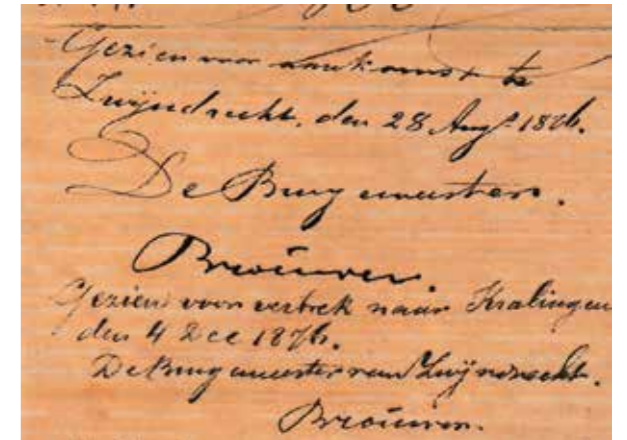 Gezien voor aankomst te
Zwijndrecht, den 28 Augs. 1876.
De Burgemeester.
Brouwer.
Gezien voor vertrek naar Kralingen
den 4 Dec 1876.
De Burgemeester van Zwijndrecht.
Brouwer.